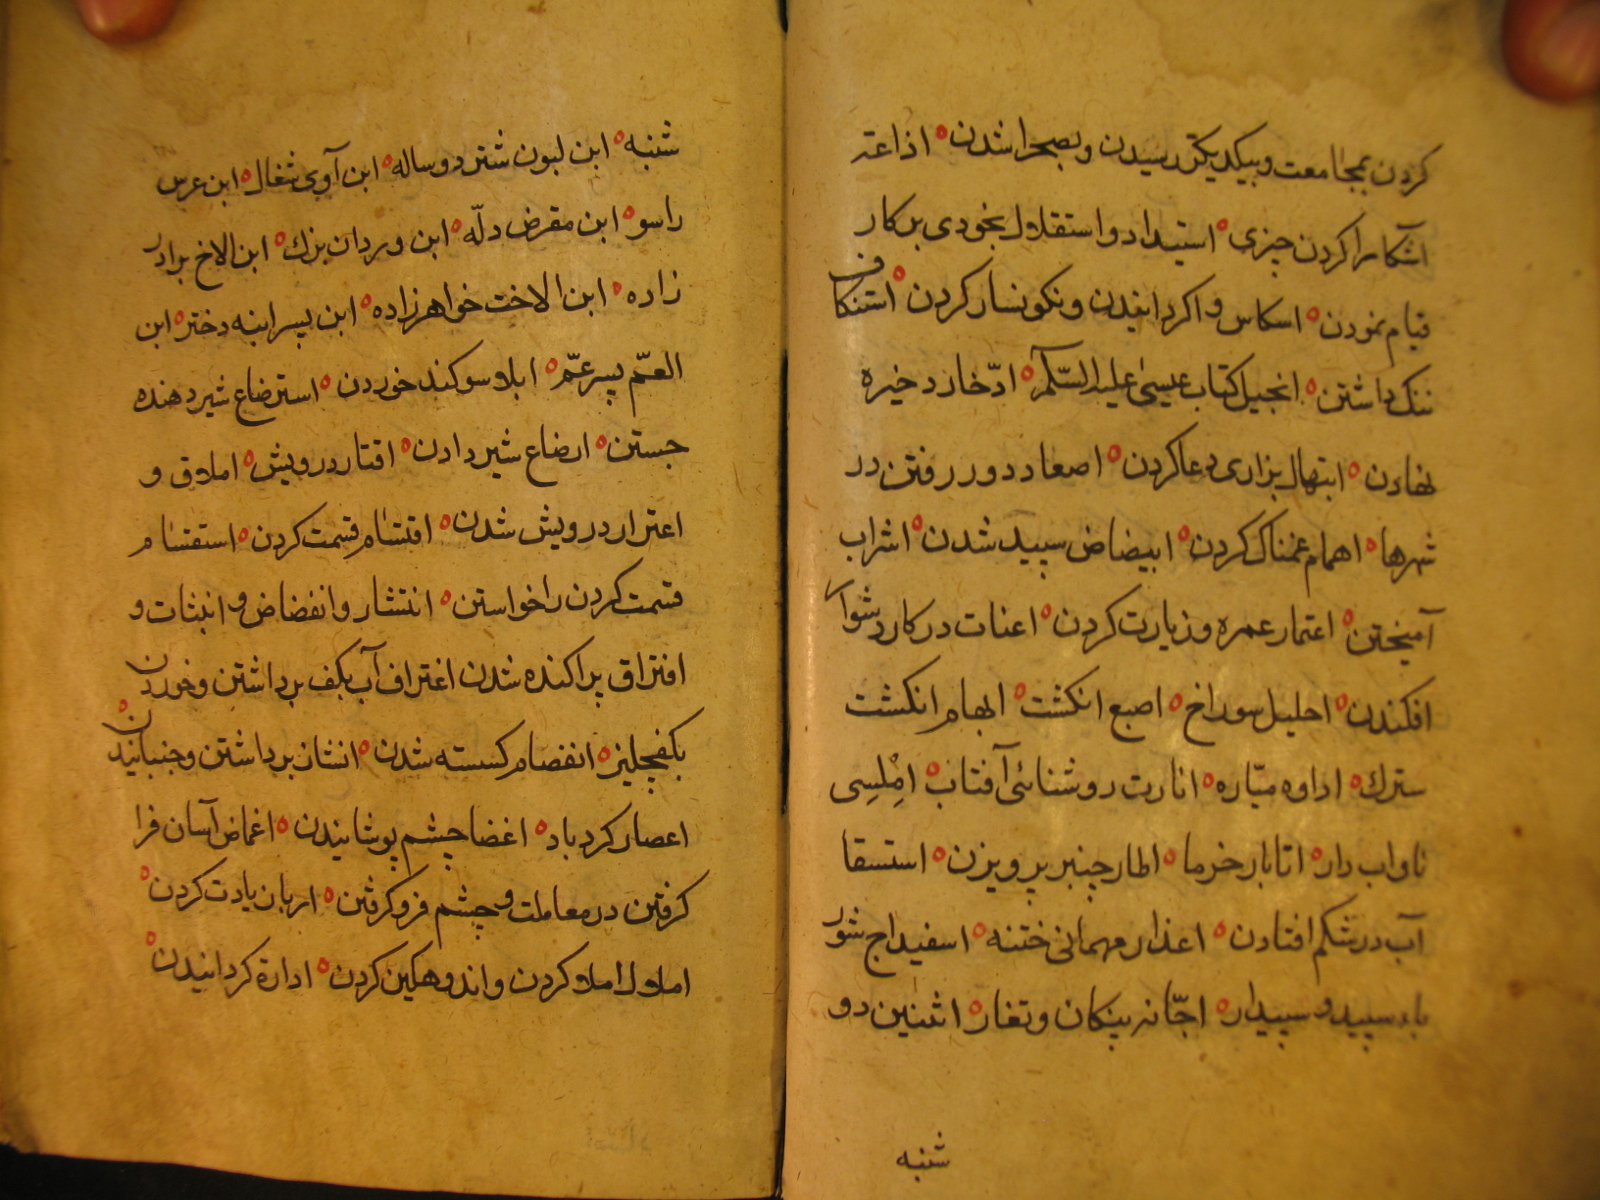 کردن بمجامعت و بیکدیکر رسیدن و بصحرا شدن ه اذاعة
آشکارا کردن چیزی ه استبداد و استقلال بخودی بر کار
قیام نمودن ه اسکاس واکردانیدن و نکونسار کردن ه استنکاف
ننک داشتن ه انجیل کتاب عیسیٰ علیه السّلام ه ادّخار دخیره
نهادن ه ابتهال بزاری دعا کردن ه اصعاد دور رفتن در
شهرها ه اهمام غمناک کردن ه ابیضاض سپید شدن ه اشراب
آمیختن ه اعتمار عمره و زیارت کردن ه اعنات در کار دشوار
افکندن ه احلیل سوراخ ه اصبع انکشت ه ابهام انکشت
سترك ه اداوه مبّاره ه انارت روشنائی آفتاب ه امْلِسِی
ناواب دار ه اتابار خرما ه اطار چنبر پرویزن ه استسقا
آب در شکم افتادن ه اعذار مهمانی ختنه ه اسفیداج شور
باء سپید و سپیدار ه اجّانه پنکان و تغار ه اثنین دو
شنبه
شنبه ه ابن لبون شتر دو ساله ه ابن آوی شغال ه ابن عرس
راسو ه ابن مقرض دلّه ه ابن وردان بزك ه ابن الاخ برادر
زاده ه ابن الاخت خواهرزاده ه ابن پسر ابنه دختر ه ابن
العمّ پسر عمّ ه ابلاو سوکند خوردن ه استرضاع شیر دهنده
جستن ه ارضاع شیر دادن ه اقتار درویش ه املاق و
اعترار درویش شدن ه اقتسام قسمت کردن ه استقسام
قسمت کردن را خواستن ه انتشار و انفضاض و انبثاث و
افتراق پراکنده شدن اغتراف آب بکف برداشتن و خوردن
بکفچلیز ه انفصام کسسته شدن ه انشان برداشتن و جنبانیدن ه
اعصار کرد باد ه اغضا چشم پوشانیدن ه اغماض آسان فرا
کرفتن در معاملت و چشم فرو کرفتن ه اربان یادت کردن ه
املال املا کردن و اندوهکین کردن ه ادارة کردانیدن ه